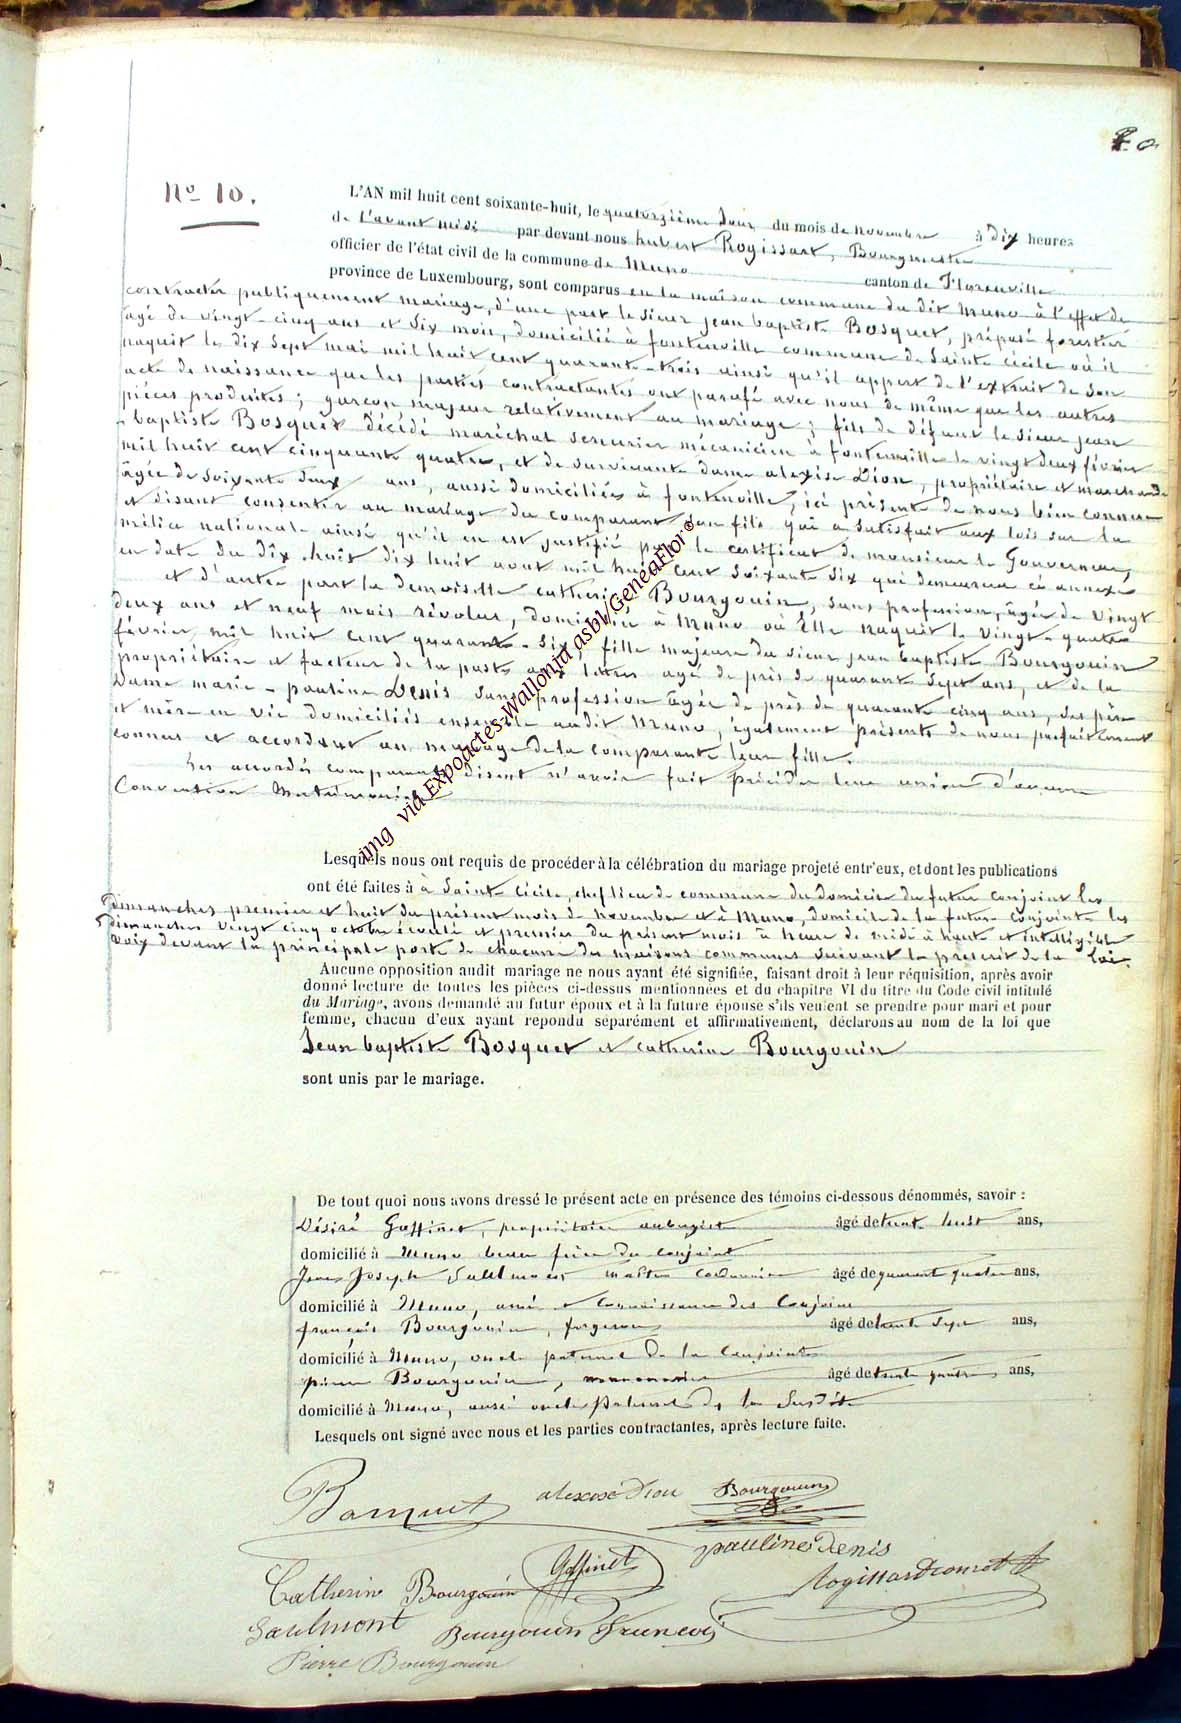 No 10.
L'AN mil huit cent soixante-huit, le quatorzième jour du mois de novembre à dix heures
de l'avant midi par devant nous hubert Rogissart, Bourgmestre
officier de l'état civil de la commune de Muno canton de Florenville
province de Luxembourg, sont comparus en la maison commune du dit Muno à l'effet de
contracter publiquement mariage, d'une part le sieur jean baptiste Bosquet, préposé forestier
agé de vingt-cinq ans et six mois, domicilié à fontenville commune de Sainte cécile où il
naquit le dix sept mai mil huit cent quarante-trois ainsi qu'il appert de l'extrait de son
acte de naissance que les parties contractantes ont parafé avec nous de même que les autres
pièces produites; garçon majeur relativement au mariage; fils de défunt le sieur jean
baptiste Bosquet décédé maréchal serrurier mécanicien à fontenville le vingt deux février
mil huit cent cinquante quatre, et de survivante dame alexise Dion, propriétaire et marchande
âgée de soixante deux ans, aussi domiciliée à fontenville, ici présente de nous bien connue
et disant consentir au mariage du comparant son fils qui a satisfait aux lois sur la
milice nationale ainsi qu'il en est justifié par le certificat de monsieur le Gouverneur,
en date du dix huit dix huit aout mil huit cent soixante six qui demeurera ci annexé
et d'autre part la demoiselle catherine Bourgouin, sans profession, âgée de vingt
deux ans et neuf mois révolus, domiciliée à Muno où elle naquit le vingt-quatre
février, mil huit cent quarante-six, fille majeure du sieur jean baptiste Bourgouin
propriétaire et facteur de la poste aux lettres agé de près de quarante sept ans, et de la
Dame marie-pauline Denis sans profession âgée de près de quarante cinq ans, ses père
et mère en vie domiciliés ensemble audit Muno, également présents de nous parfaitement
connus et accordant au mariage de la comparante leur fille.
Les accordés comparants disent n'avoir fait précéder leur union d'aucune
Convention Matrimoniale
Lesquels nous ont requis de procéder à la célébration du mariage projeté entr'eux, et dont les publications
ont été faites à à Sainte Cécile, chef lieu de commune du domicile du futur conjoint les
dimanches premier et huit du présent mois de novembre et à Muno, domicile de la future conjointe les
dimanches vingt cinq octobre écoulé et premier du présent mois à heure de midi à haute et intelligible
voix devant la principale porte de chacune des maisons communes suivant le prescrit de la loi.
Aucune opposition audit mariage ne nous ayant été signifiée, faisant droit à leur réquisition, après avoir
donné lecture de toutes les pièces ci-dessus mentionnées et du chapitre VI du titre du Code civil intitulé
du Mariage, avons demandé au futur époux et à la future épouse s'ils veulent se prendre pour mari et pour
femme, chacun d'eux ayant repondu séparément et affirmativement, déclarons au nom de la loi que
Jean baptiste Bosquet et catherine Bourgouin
sont unis par le mariage.
De tout quoi nous avons dressé le présent acte en présence des témoins ci-dessous dénommés, savoir :
Désiré Goffinet, propriétaire aubergiste âgé de trente huit ans,
domicilié à Muno beau frère du conjoint
Jean Joseph Saulmont maître cordonnier âgé de quarante quatre ans,
domicilié à Muno, ami et connaissance des Conjoints
françois Bourgouin, forgeron âgé de trente sept ans,
domicilié à Muno, oncle paternel de la Conjointe
pierre Bourgouin, âgé de trente quatre ans,
domicilié à Muno, aussi oncle paternel de la susdite
Lesquels ont signé avec nous et les parties contractantes, après lecture faite.
Bosquet alexise Dion Bourgouin
pauline denis
Catherine Bourgouin Goffinet Rogissart
Saulmont Bourgouin François
Pierre Bourgouin
img via Expoactes-Wallonia asbl/GeneaFlor®